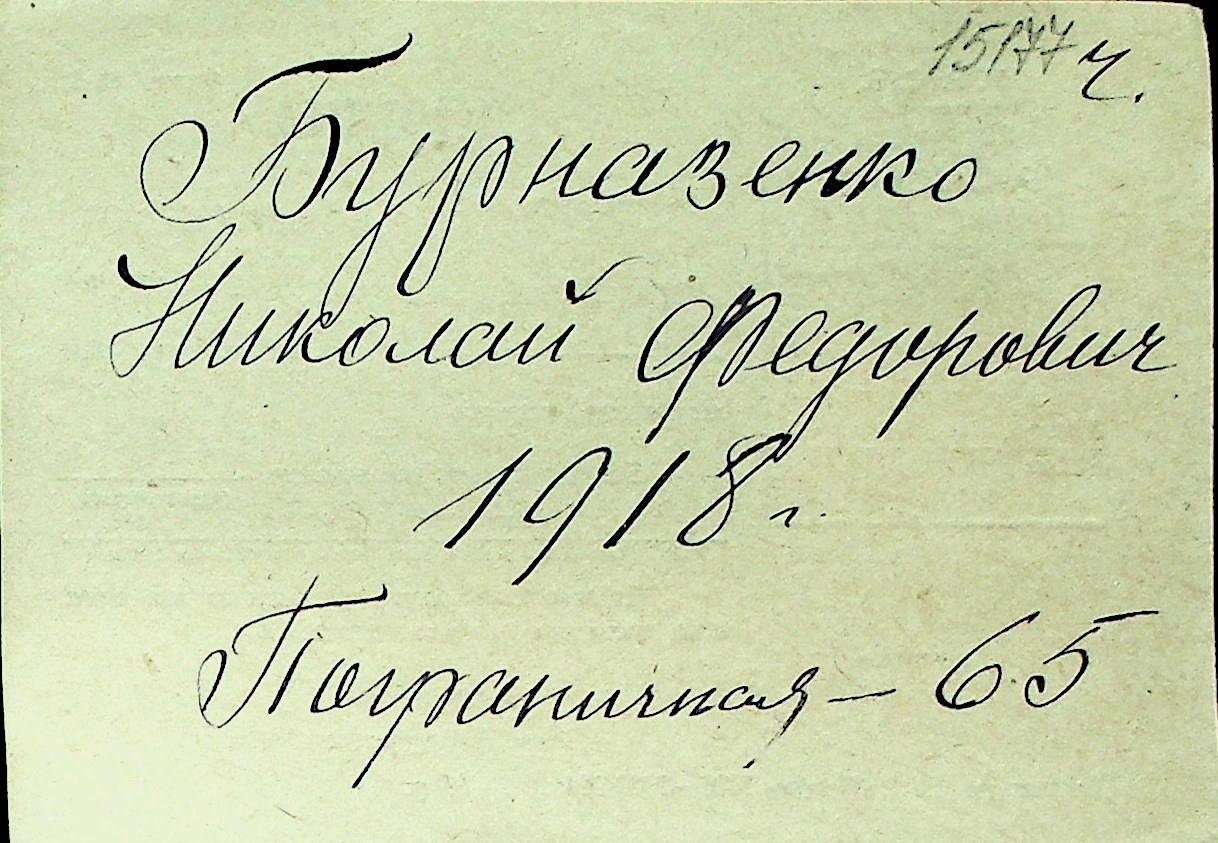 15177 ч.
Бурназенко
Николай Федорович
1918 г.
Пограничная – 65